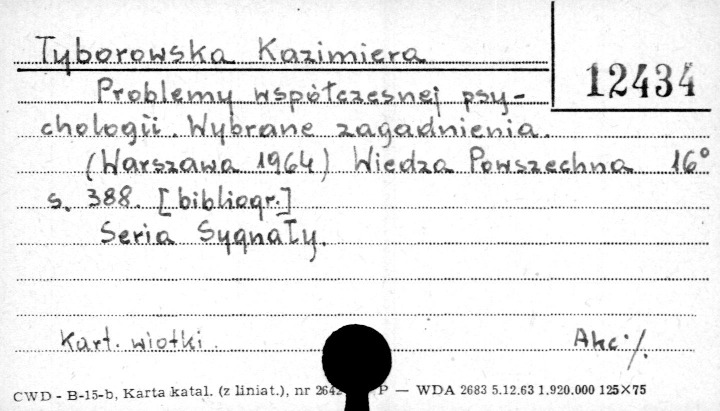 Tyborowska Kazimiera
12434
Problemy współczesnej psy-
chologii. Wybrane zagadnienia.
(Warszawa 1964) Wiedza Powszechna 16°
s. 388. [bibliogr.]
Seria Sygnały.
Kart. wiotki. Akc ·/.
CWD - B-15-b, Karta katal. (z liniat.), nr 264 P — WDA 2683 5.12.63 1,920.000 125×75